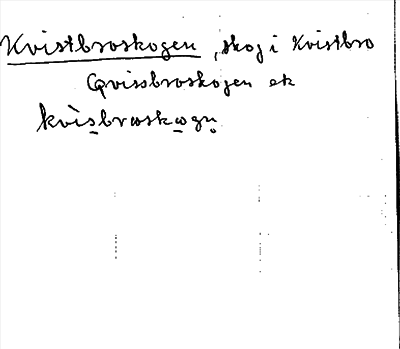 Kvistbroskogen, skog i Kvistbro
Qvissbroskogen ek
kvìsbrωskωgn